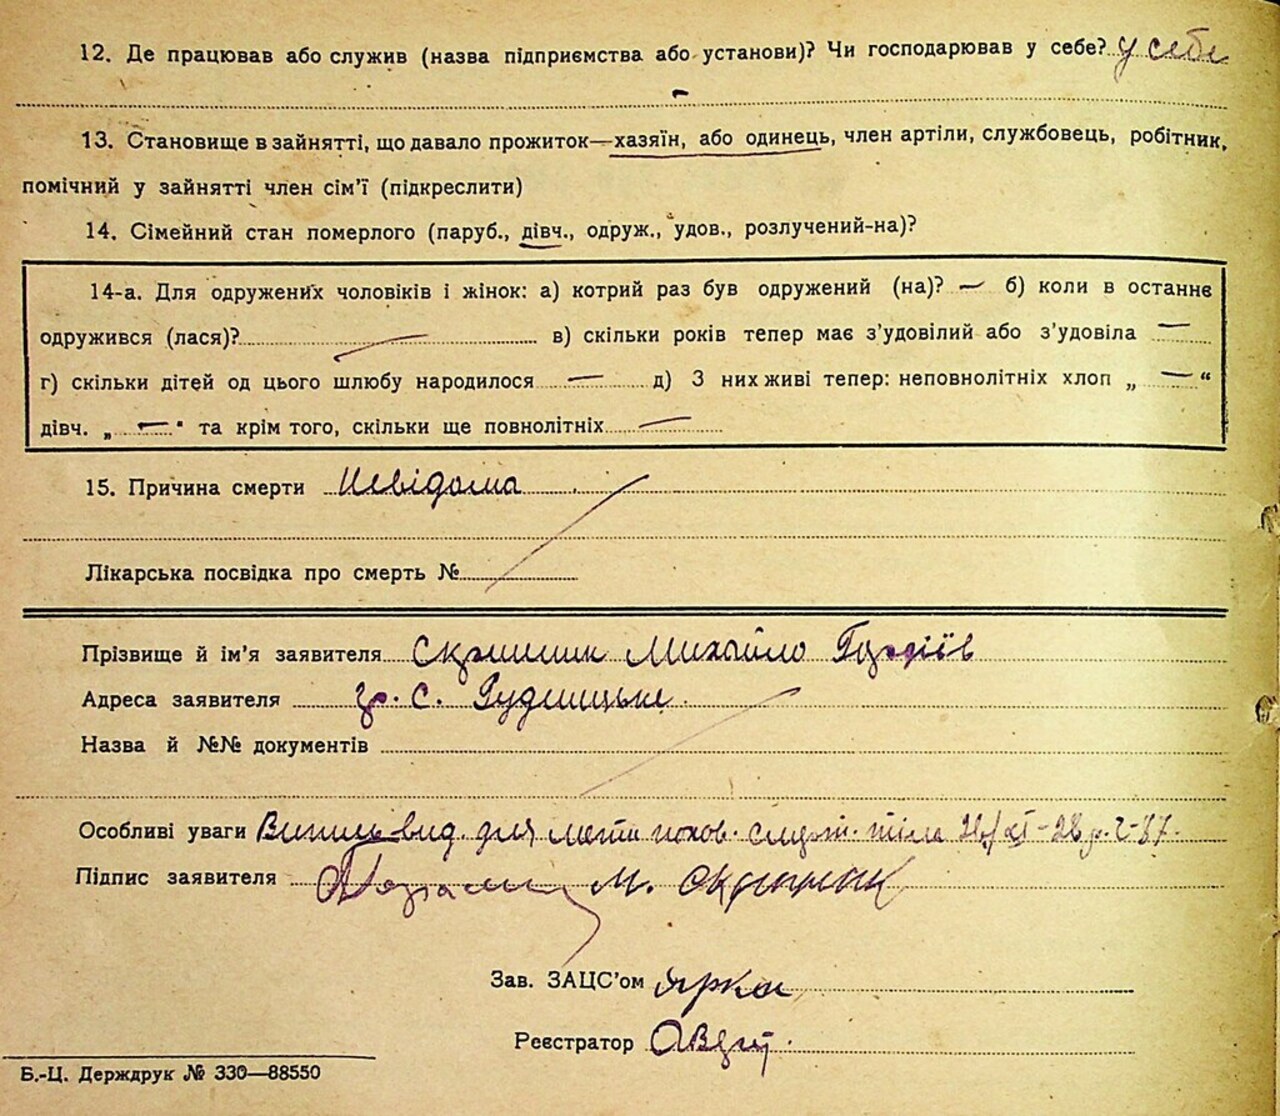 12. Де працював або служив (назва підприємства або установи)? Чи господарював у себе? у себе
13. Становище в зайнятті, що давало прожиток—хазяїн, або одинець, член артіли, службовець, робітник,
помічний у зайнятті член сім'ї (підкреслити)
14. Сімейний стан померлого (паруб., дівч., одруж., удов., розлучений-на)?
14-а. Для одружених чоловіків і жінок: а) котрий раз був одружений (на)? — б) коли в останнє
одружився (лася)? — в) скільки років тепер має з'удовілий або з'удовіла —
г) скільки дітей од цього шлюбу народилося — д) З них живі тепер: неповнолітніх хлоп „ — “
дівч. „ — " та крім того, скільки ще повнолітніх —
15. Причина смерти Невідома
Лікарська посвідка про смерть №
Прізвище й ім'я заявителя Скрипник Михайло
Адреса заявителя гр. с. Рудницьке
Назва й №№ документів
Особливі уваги вид. для тіла
Підпис заявителя М. Скрипник
Зав. ЗАЦС'ом
Реєстратор
Б.-Ц. Держдрук № 330—88550